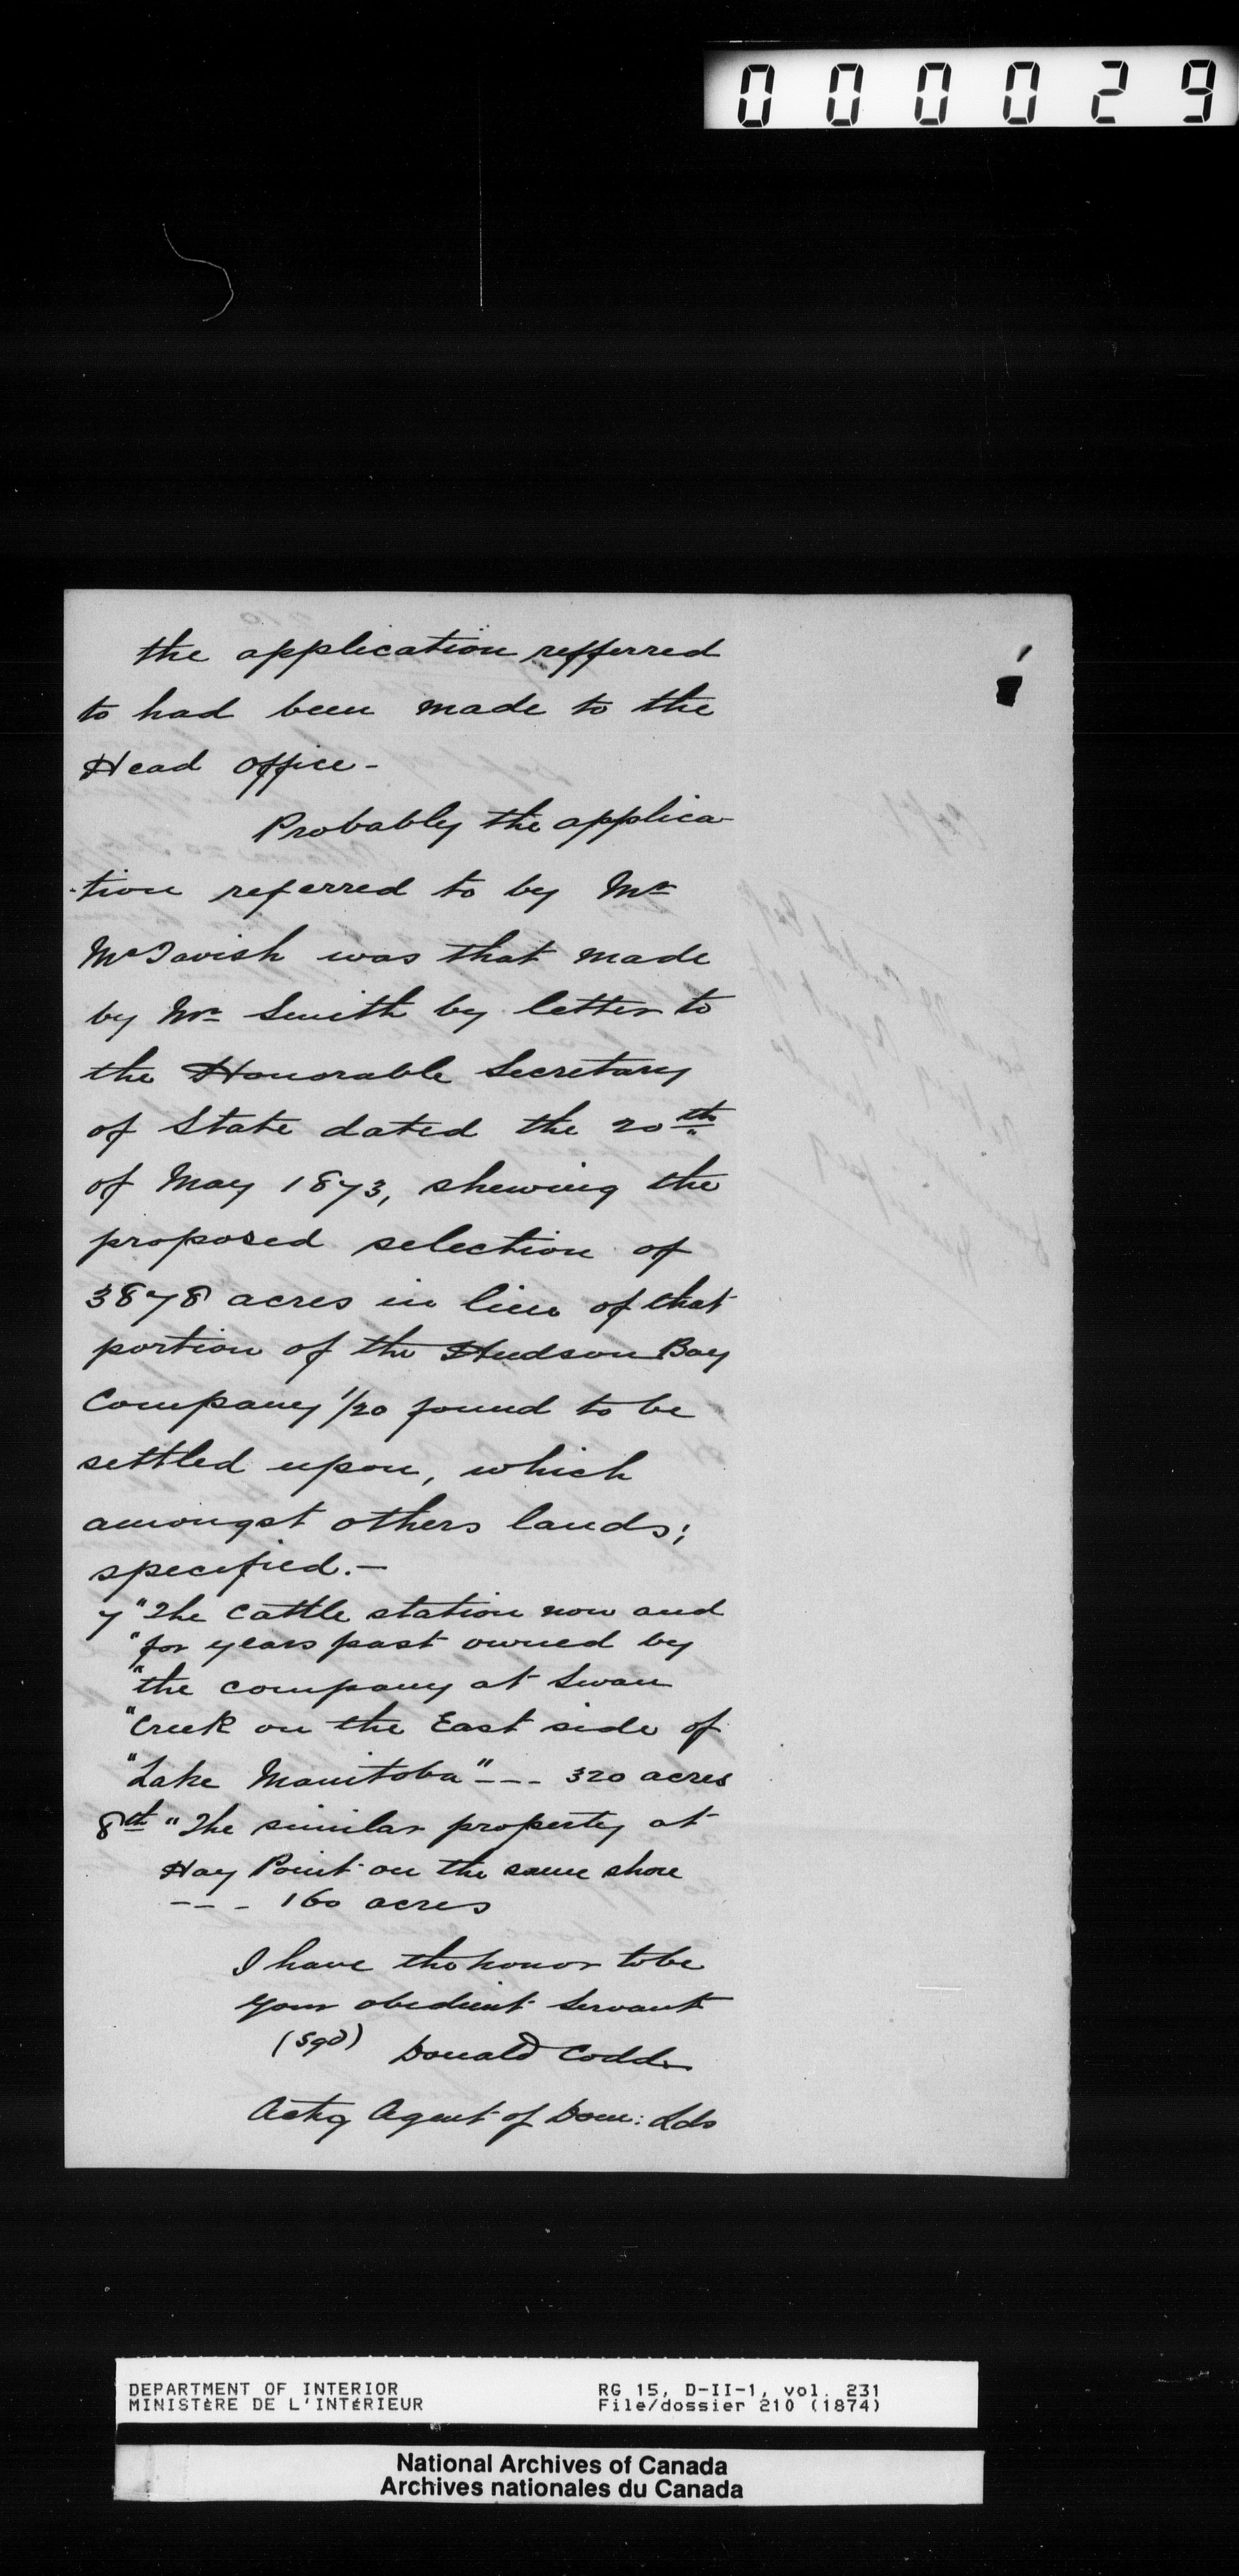 000029
the application refferred
to had been made to the
Head office -
Probably the applica-
-tion referred to by Mr
McTavish was that made
by Mr Smith by letter to
the Honorable Secretary
of State dated the 20th
of May 1873, shewing the
proposed selection of
3878 acres in lieu of that
portion of the Hudson Bay
Company 1/20 found to be
settled upon, which
amongst others lands;
specified.-
7 "The Cattle station now and
"for years past owned by
"the company at Swan
"Creek on the East side of
"Lake Manitoba" --- 320 acres
8th "The similar property at
Hay Point on the same shore
--- 160 acres
I have the honor to be
your obedient Servant
(Sgd) Donald Codd
Actg Agent of Dom: Lds
DEPARTMENT OF INTERIOR
MINISTÈRE DE L'INTÉRIEUR
RG 15, D-II-1, vol. 231
File/dossier 210 (1874)
National Archives of Canada
Archives nationales du Canada